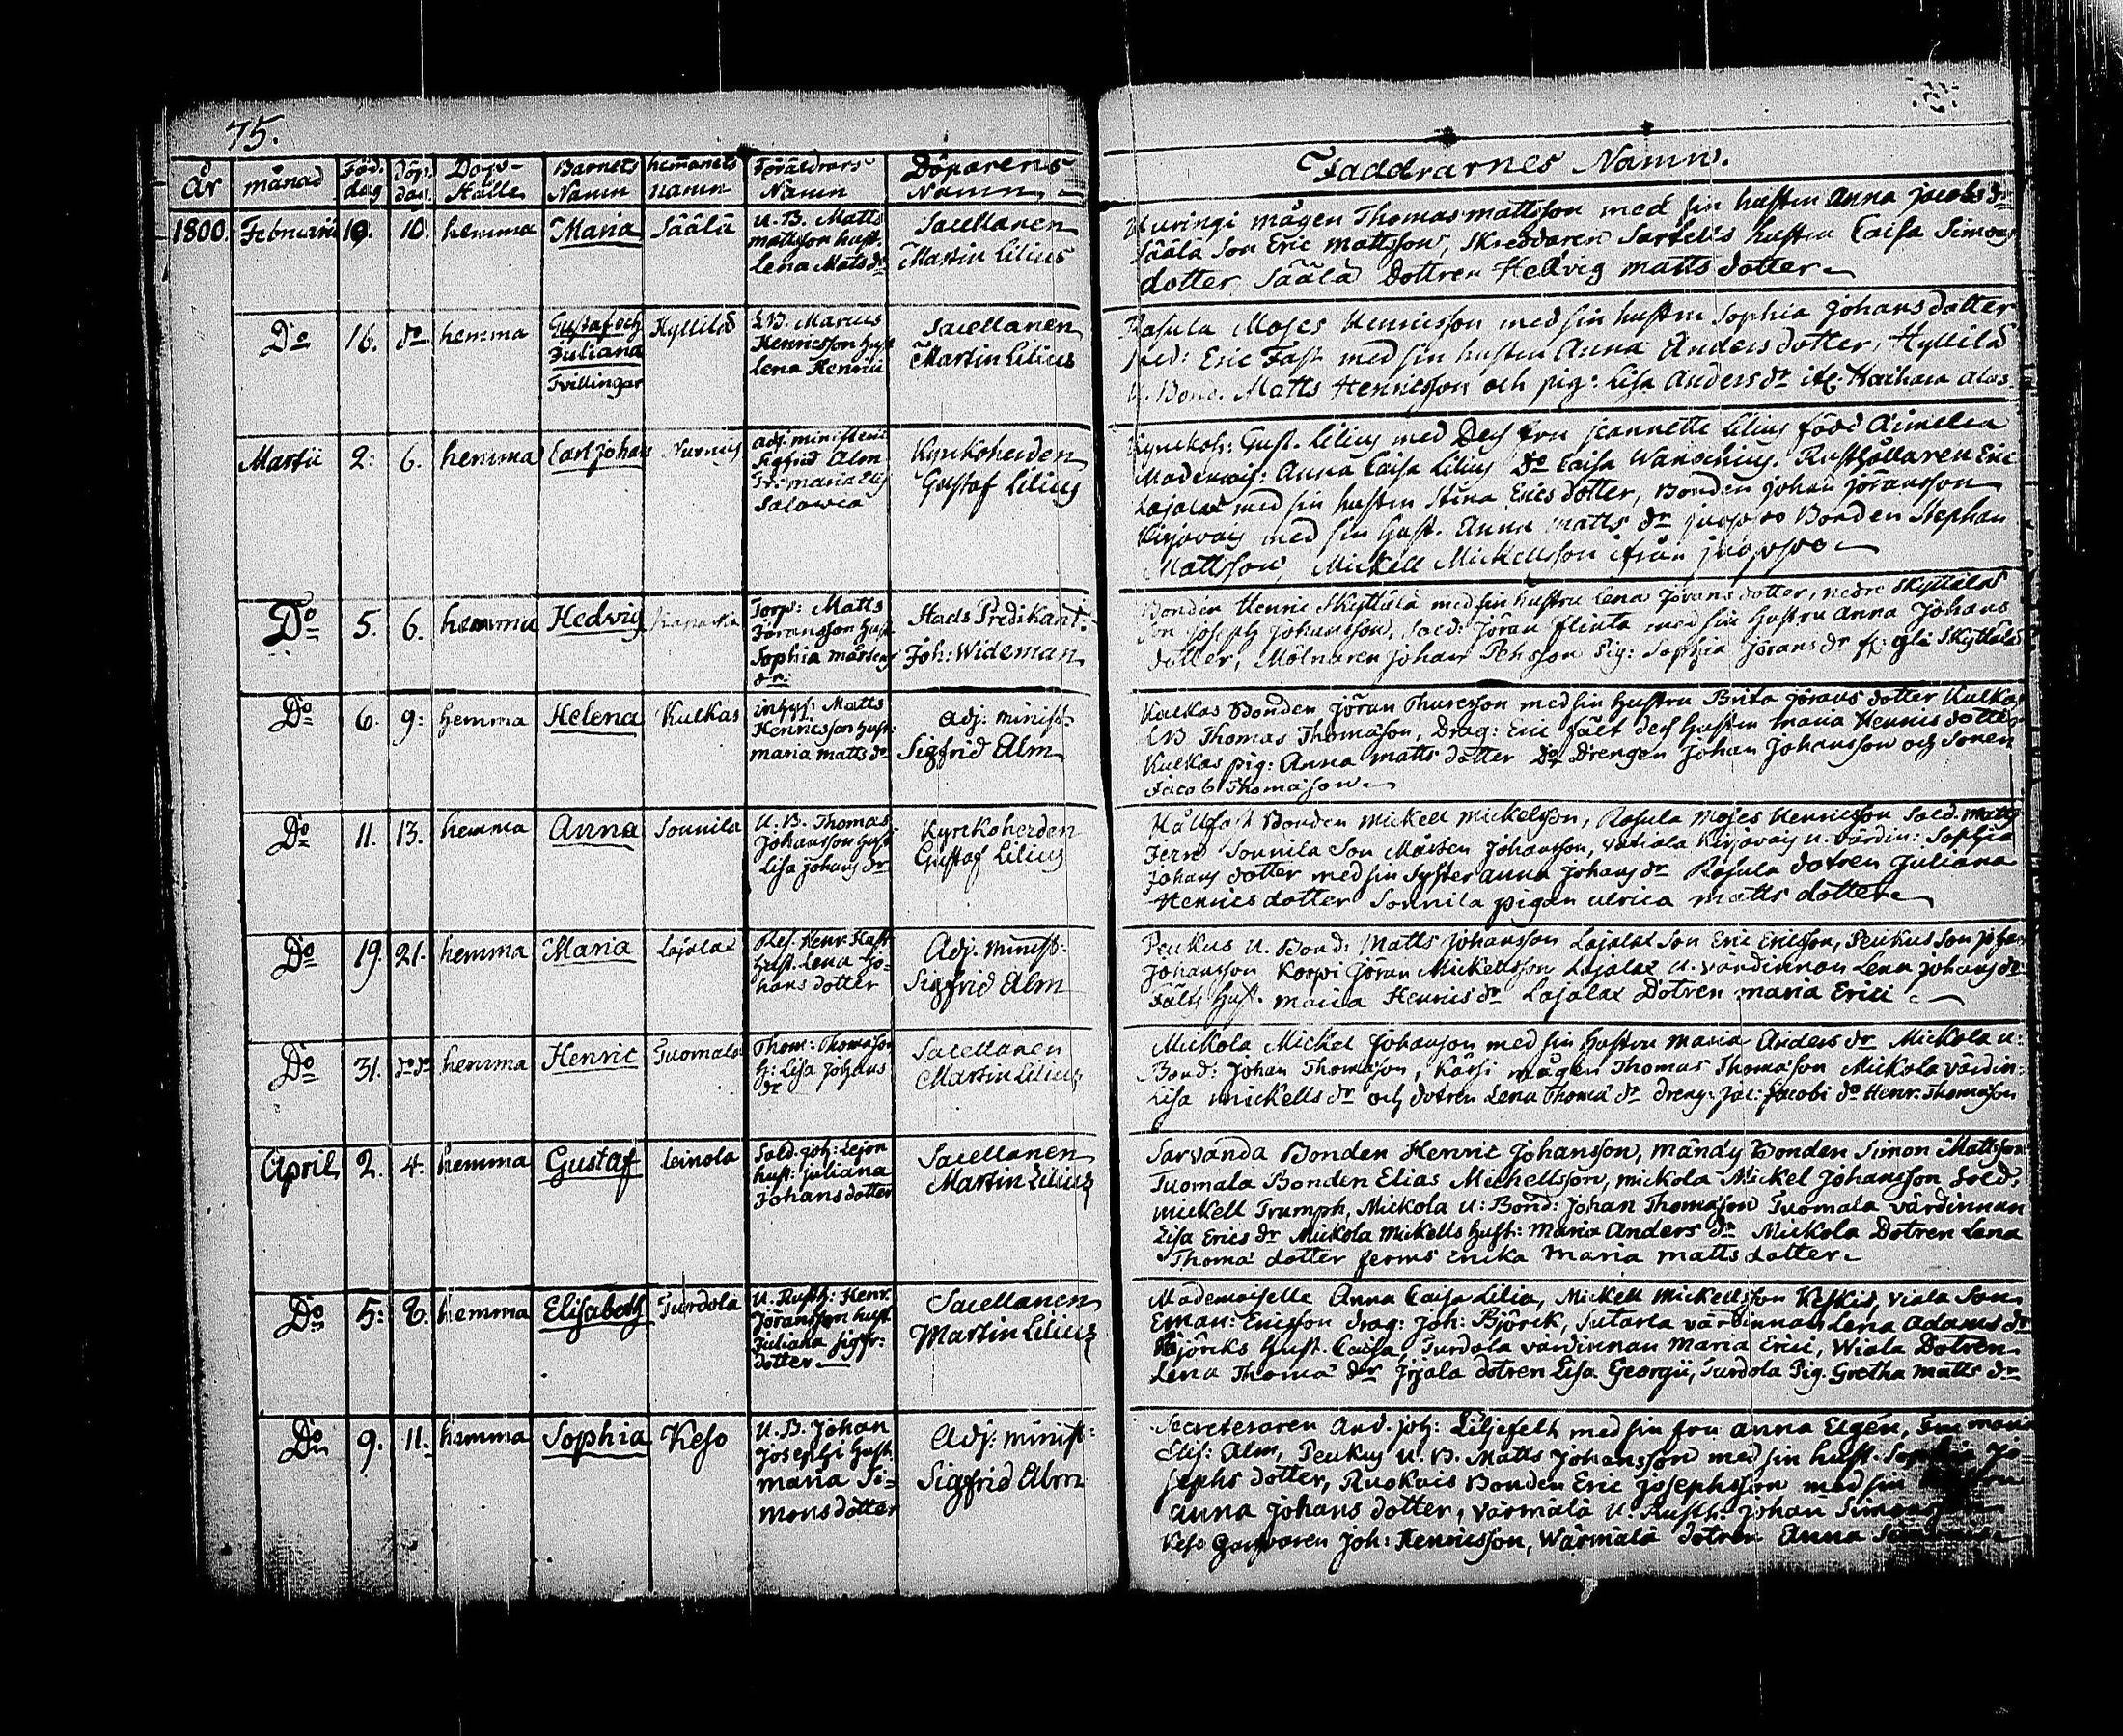 75.
År månad Föd. dag Döp. dag Dops- Ställe Barnets Namn hemanets namn Föräldrars Namn Döparens Namn
Faddrarnes Namn.
1800. Februarii 10. 10. hemma Maria Säälä
U. B. Matts
mattsson hust.
Lena Mats dr
Sacellanen
Martin Lilius
mågen Thomas mattsson med sin hustru Anna jacobs dr
Säälä Son Eric mattsson, Skreddaren hustru Caisa Simons
dotter Säälä Dottren Hedvig matts dotter
Do 16. do hemma
Gustaf och
Juliana
Tvillingar
Hyllilä
Marcus
Henricsson hust
Lena Henrici
Sacellanen
Martin Lilius
Rasula Moses Henricsson med sin hustru Sophia Johans dotter
Eric Fast med sin hustru Anna Anders dotter, Hyllilä
Bond. Matts Henricsson och pig: Lisa Anders dr
Martii 2: 6. hemma Carl Johan
adj. ministerii
Sigfrid Alm
Fr: maria Elis
Kyrckoherden
Gustaf Lilius
Kyrckoh: Gust. Lilius med Dess fru jeannette Lilius född
Anna Caisa Lilius Do Caisa Rusthållaren Eric
Lajalax med sin hustru Stina Erics dotter, Bonden Johan Jöransson
Kirjavais med sin hust. Anna matts dr Bonden Stephan
Mattsson, Mickell Mickellsson ifrån
Do 5. 6. hemma Hedvig
Torp: Matts
Jöransson hust
Sophia mårtens
dr:
Stads Predikant:
Joh: Wideman
Bonden Henric Skyttälä med sin hustru Lena Jörans dotter, nedre Skyttälä
Son Joseph Johansson, Sold: Jöran flinta med sin hustru Anna Johans
dotter, Mölnaren Johan pig: Sophia Jörans dr Skyttälä
Do 6. 9: hemma Helena Kulkas
inhys: Matts
Henricsson hust:
maria matts dr
adj: minist:
Sigfrid Alm
Kulkas Bonden Jöran Thuresson med sin hustru Brita Jörans dotter Kulkas
Thomas Thomasson, Drag: Eric fält dess hustru maria Henrics dotter
Kulkas pig: Anna matts dotter Do Drengen Johan Johansson och Sonen
Jacob Thomasson
Do 11. 13. hemma Anna Sounila
U. B. Thomas
Johansson hust
Lisa johans dr
Kyrckoherden
Gustaf Lilius
Hållfast Bonden mickell mickelsson, Rasula moses Henricsson Sold. matts
Jern Sounila Son Mårten Johansson, vatiala Kirjavais u. värdin: Sophia
Johans dotter med sin Syster anna johans dr Rasula dotren Juliana
Henrics dotter Sounila pigan ulrica matts dotter
Do 19. 21. hemma Maria Lajalax
Henr. Hast
hust. Lena Jo-
hans dotter
Adj. minist:
Sigfrid Alm
Peukus U. Bond: Matts Johansson Lajalax Son Eric Ericsson, Peukus Son johan
Johansson Korpi Jöran Mickellsson Lajalax u. värdinnan Lena johans dr
Fälts hust. maria Henrics dr Lajalax Dotren maria Erici
Do 31. do do hemma Henric Tuomala
Thom: Thomasson
h: Lisa Johans
dr
Sacellanen
Martin Lilius
Mickola Mickel Johansson med sin hustru maria Anders dr Mickola u:
Bond: Johan Thomasson, Kärsi mågen Thomas Thomasson Mickola värdin:
Lisa mickells dr och dotren Lena Thoma dr dreng: Jac: Jacobi do Henr: Thomasson
April 2. 4. hemma Gustaf Leinola
Sold. joh: Lejon
hust: juliana
Johans dotter
Sacellanen
Martin Lilius
Sarvanda Bonden Henric Johansson, mändy Bonden Simon Mattsson
Tuomala Bonden Elias Michellsson, mickola Mickel Johansson Sold:
mickell Trumph, Mickola U: Bond: Johan Thomasson Tuomala värdinnan
Lisa Erics dr Mickola Mickells hust: Maria Anders dr Mickola Dotren Lena
Thoma dotter Maria matts dotter
Do 5: 8. hemma Elisabeth Turdola
U. Rusth: Henr.
Jöransson hust.
Juliana Sigfr:
dotter
Sacellanen
Martin Lilius
Mademoiselle Anna Caisa Lilia, Mickell Mickellsson Keskis, Viala Son
Eman: Ericsson Drag: Joh: Björck, Sutarla värdinnan Lena Adams dr
Björcks hust. Caisa, Turdola värdinnan Maria Erici, Wiala Dotren
Lena Thoma dr Jrjala dotren Lisa Georgii, Turdola Pig. Gretha matts dr
Do 9. 11. hemma Sophia Keso
U. B. Johan
Josephi hust
maria Si-
mons dotter
Adj: minist:
Sigfrid Alm
Secreteraren And. joh: Liljefelt med sin fru anna Elgen, Fru maria
Elis: Alm, Peukus U. B. Matts Johansson med sin hust. Sophia Jo
sephs dotter, Ruokois Bonden Eric josephsson med sin hustru
anna johans dotter, värmälä U. Rusth: Johan
Keso Joh: Henricsson, Wärmälä dotren Anna